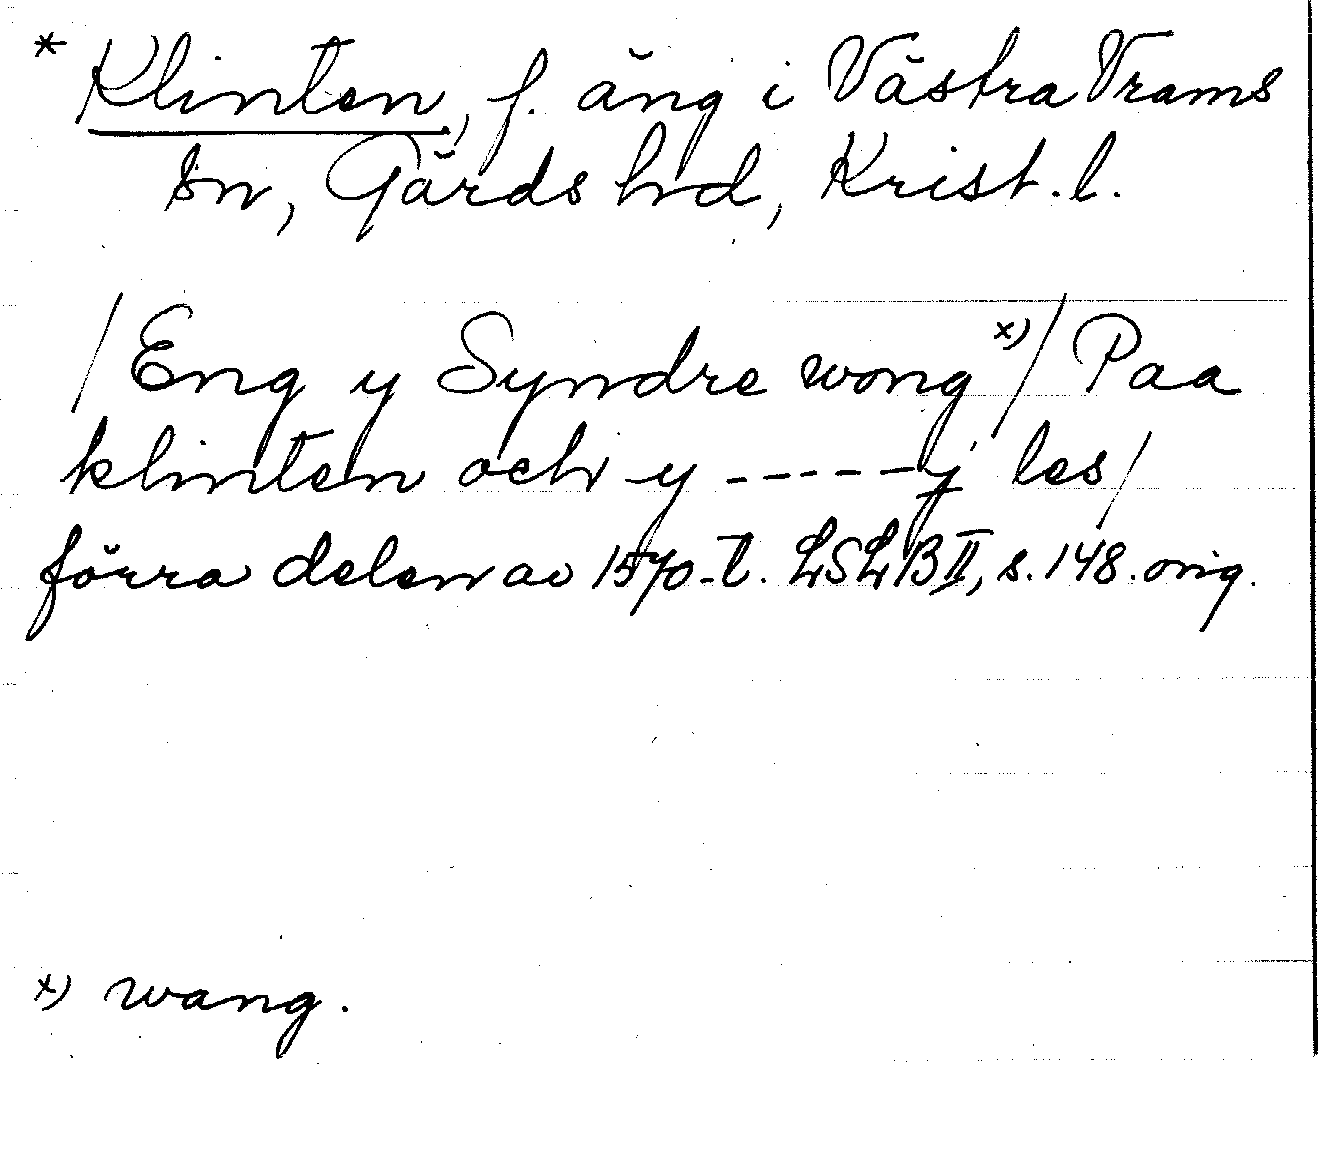 * Klinten, f. äng i Västra Vrams
sn, Gärds hd, Krist. l.
/Eng y Syndre wong x)/ Paa
klinten och y ----- j les/
förra delen av 1570-t. LSLB II, s. 148. orig.
x) wang.